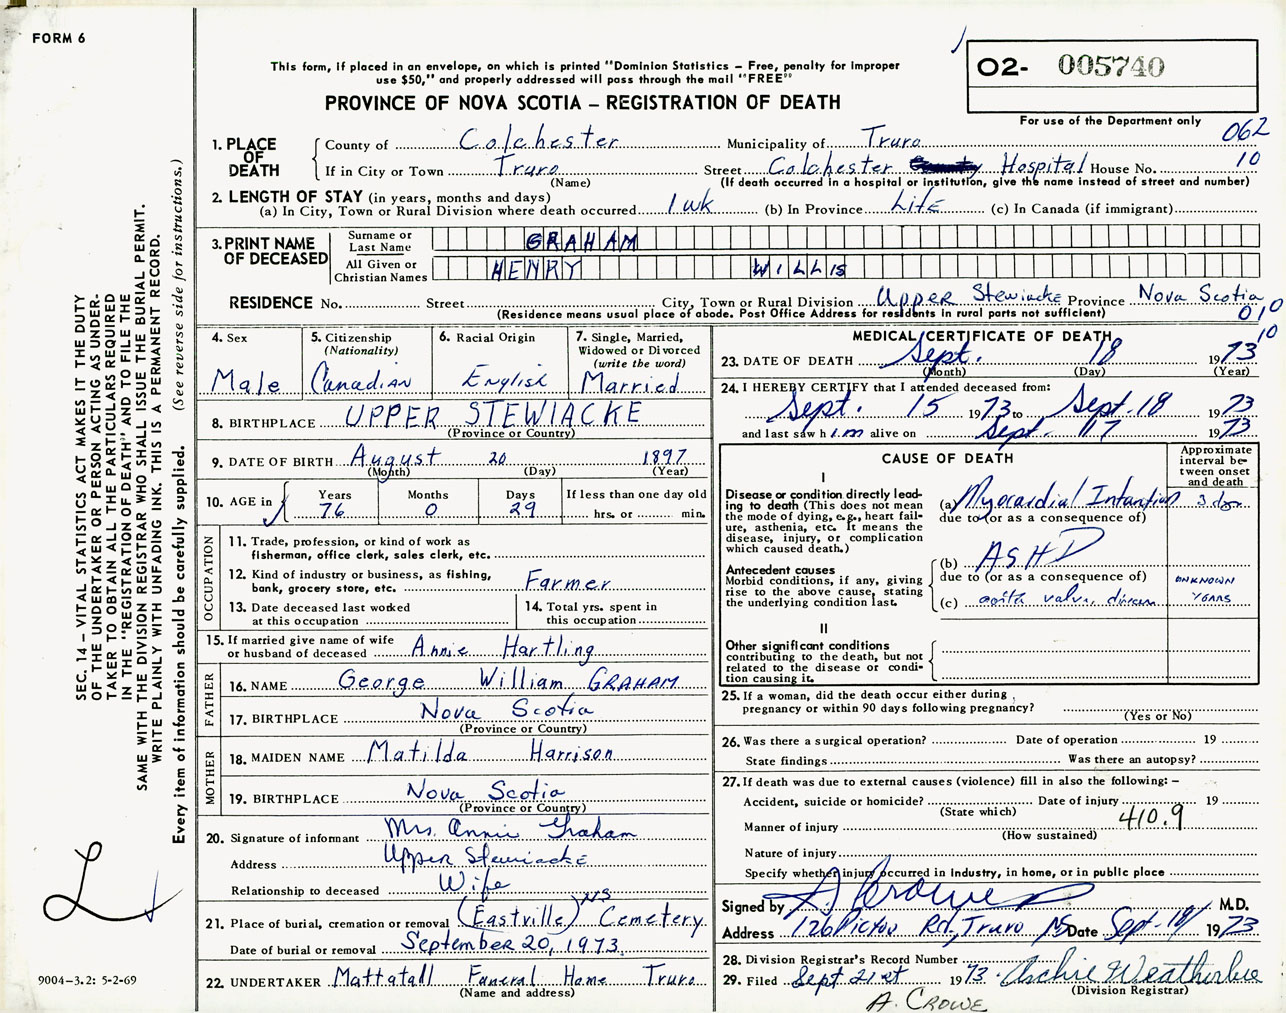 FORM 6
This form, if placed in an envelope, on which is printed "Dominion Statistics – Free, penalty for improper
use $50," and properly addressed will pass through the mail "FREE"
PROVINCE OF NOVA SCOTIA – REGISTRATION OF DEATH
O2- 005740
For use of the Department only
062
10
1. PLACE OF DEATH
County of Colchester Municipality of Truro
If in City or Town Truro Street Colchester Hospital House No.
(Name) (If death occurred in a hospital or institution, give the name instead of street and number)
2. LENGTH OF STAY (in years, months and days)
(a) In City, Town or Rural Division where death occurred 1 wk (b) In Province Life (c) In Canada (if immigrant)
3. PRINT NAME OF DECEASED
Surname or Last Name GRAHAM
All Given or Christian Names HENRY WILLIS
RESIDENCE No. Street City, Town or Rural Division Upper Stewiacke Province Nova Scotia
(Residence means usual place of abode. Post Office Address for residents in rural parts not sufficient)
010
10
4. Sex Male
5. Citizenship (Nationality) Canadian
6. Racial Origin English
7. Single, Married, Widowed or Divorced (write the word) Married
8. BIRTHPLACE UPPER STEWIACKE
(Province or Country)
9. DATE OF BIRTH August 20 1897
(Month) (Day) (Year)
10. AGE in Years 76 Months 0 Days 29 If less than one day old hrs. or min.
OCCUPATION
11. Trade, profession, or kind of work as
fisherman, office clerk, sales clerk, etc.
12. Kind of industry or business, as fishing,
bank, grocery store, etc. Farmer
13. Date deceased last worked
at this occupation
14. Total yrs. spent in
this occupation
15. If married give name of wife
or husband of deceased Annie Hartling
FATHER
16. NAME George William GRAHAM
17. BIRTHPLACE Nova Scotia
(Province or Country)
MOTHER
18. MAIDEN NAME Matilda Harrison
19. BIRTHPLACE Nova Scotia
(Province or Country)
20. Signature of informant Mrs. Annie Graham
Address Upper Stewiacke
Relationship to deceased Wife
21. Place of burial, cremation or removal (Eastville) NS Cemetery
Date of burial or removal September 20, 1973
22. UNDERTAKER Mattatall Funeral Home Truro
(Name and address)
MEDICAL CERTIFICATE OF DEATH
23. DATE OF DEATH Sept. 18 1973
(Month) (Day) (Year)
24. I HEREBY CERTIFY that I attended deceased from:
Sept. 15 1973 to Sept. 18 1973
and last saw him alive on Sept. 17 1973
CAUSE OF DEATH
Approximate interval between onset and death
I
Disease or condition directly lead-
ing to death (This does not mean
the mode of dying, e.g., heart fail-
ure, asthenia, etc. It means the
disease, injury, or complication
which caused death.)
(a) Myocardial Infarction 3 days
due to (or as a consequence of)
Antecedent causes
Morbid conditions, if any, giving
rise to the above cause, stating
the underlying condition last.
(b) ASHD
due to (or as a consequence of)
(c) valve disease UNKNOWN YEARS
II
Other significant conditions
contributing to the death, but not
related to the disease or condi-
tion causing it.
25. If a woman, did the death occur either during
pregnancy or within 90 days following pregnancy?
(Yes or No)
26. Was there a surgical operation? Date of operation 19
State findings Was there an autopsy?
27. If death was due to external causes (violence) fill in also the following: –
Accident, suicide or homicide? Date of injury 19
(State which)
410.9
Manner of injury
(How sustained)
Nature of injury
Specify whether injury occurred in industry, in home, or in public place
Signed by A Crowe M.D.
Address 126 Pictou Rd, Truro NS Date Sept. 18 1973
28. Division Registrar's Record Number
29. Filed Sept 21st 1973. Archie Weatherbee
(Division Registrar)
A. CROWE
SEC. 14 – VITAL STATISTICS ACT MAKES IT THE DUTY
OF THE UNDERTAKER OR PERSON ACTING AS UNDER-
TAKER TO OBTAIN ALL THE PARTICULARS REQUIRED
IN THE "REGISTRATION OF DEATH" AND TO FILE THE
SAME WITH THE DIVISION REGISTRAR WHO SHALL ISSUE THE BURIAL PERMIT.
WRITE PLAINLY WITH UNFADING INK. THIS IS A PERMANENT RECORD.
Every item of information should be carefully supplied. (See reverse side for instructions.)
9004-3.2: 5-2-69